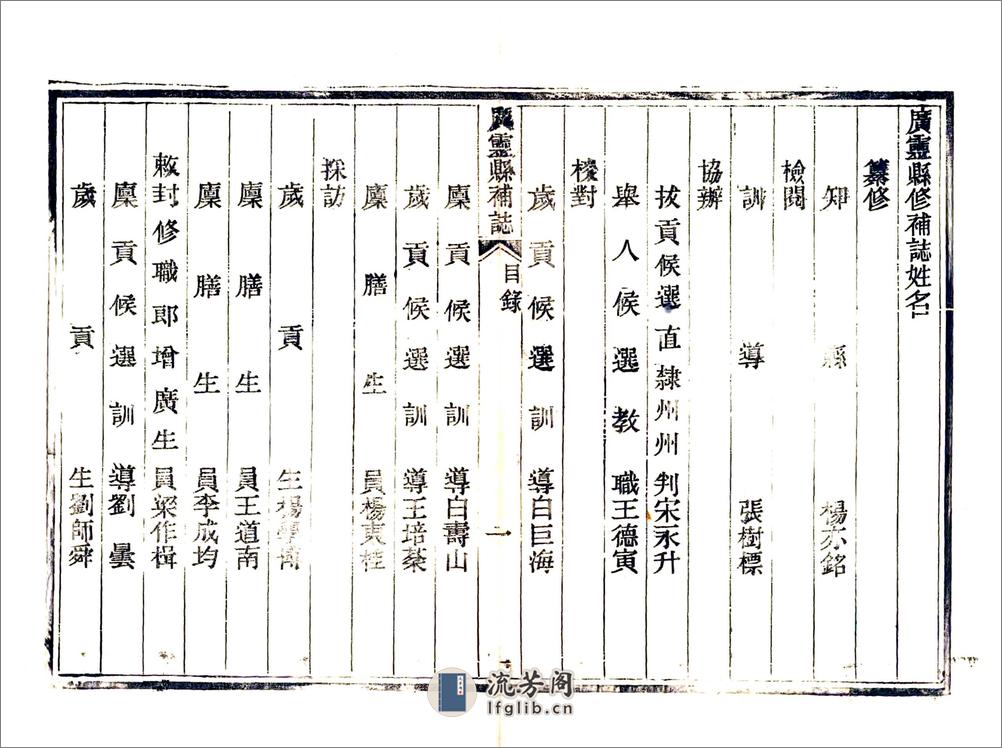 廣靈縣修補誌姓名
纂修
知縣楊亦銘
檢閱
訓導張樹標
協辦
拔貢候選直隸州州判宋永升
舉人候選教職王德寅
校對
歲貢候選訓導白巨海
廣靈縣補誌
目錄
一
廩貢候選訓導白壽山
歲貢候選訓導王培棻
廩膳生員楊夷桂
採訪
歲貢生楊學
廩膳生員王道南
廩膳生員李成均
敕封修職郎增廣生員梁作楫
廩貢候選訓導劉曇
歲貢生劉師舜
流芳阁
lfglib.cn